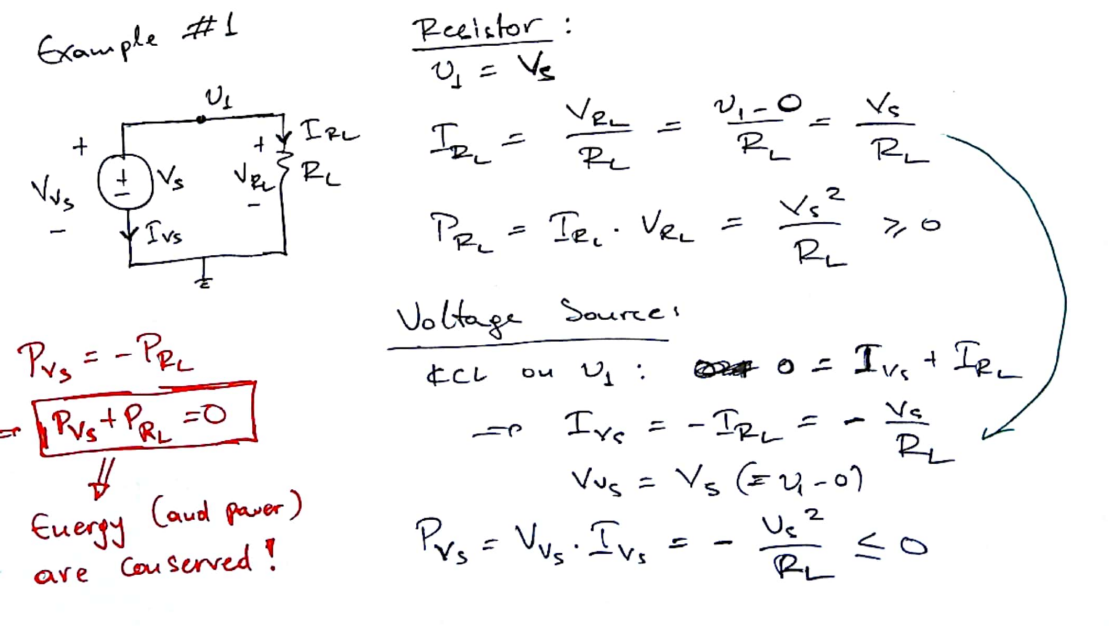 Example #1
υ₁
+
V_Vs
−
+
−
Vs
I_Vs
+
V_RL
−
I_RL
R_L
P_Vs = − P_RL
⇒ P_Vs + P_RL = 0
⇓
Energy (and power)
are conserved!
Resistor :
υ₁ = Vs
I_RL = V_RL / R_L = (υ₁ − 0) / R_L = Vs / R_L
P_RL = I_RL · V_RL = Vs² / R_L ≥ 0
Voltage Source:
KCL on υ₁ : 0 = I_Vs + I_RL
⇒ I_Vs = − I_RL = − Vs / R_L
V_Vs = Vs (= υ₁ − 0)
P_Vs = V_Vs · I_Vs = − Vs² / R_L ≤ 0